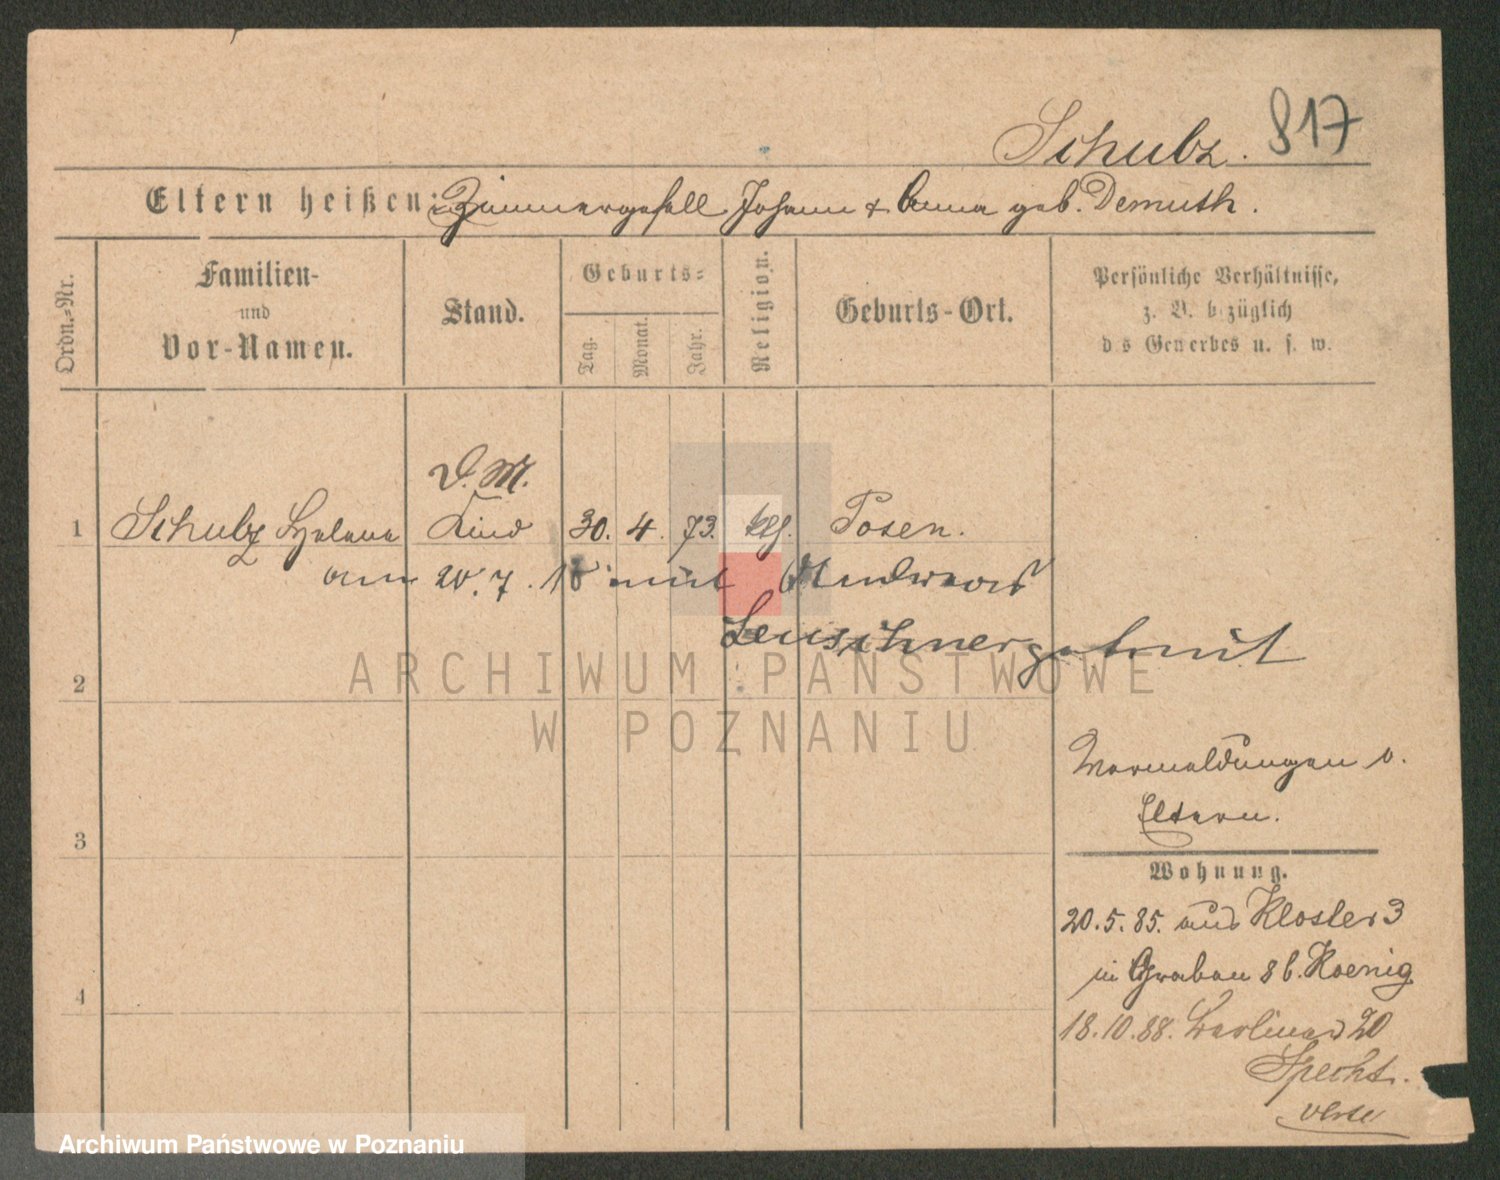 Schulz. 817
Eltern heißen: Zimmergesell Johann & Anna geb. Demuth.
Ordn.-Nr.
Familien-
und
Vor-Namen.
Stand.
Geburts-
Tag.
Monat.
Jahr.
Religion.
Geburts-Ort.
Persönliche Verhältnisse,
z. B. bezüglich
des Gewerbes u. s. w.
D. M.
1 Schulz Helene Kind 30. 4. 73. kth. Posen.
am 20. 7. mit Andreas
Leuschner getraut
2
ARCHIWUM PAŃSTWOWE
W POZNANIU
Vermeldungen b.
Eltern.
3
Wohnung.
20.5.85. aus Kloster 3
in Graben 8 b. Koenig
4
18.10.88. 20
Specht.
verte
Archiwum Państwowe w Poznaniu